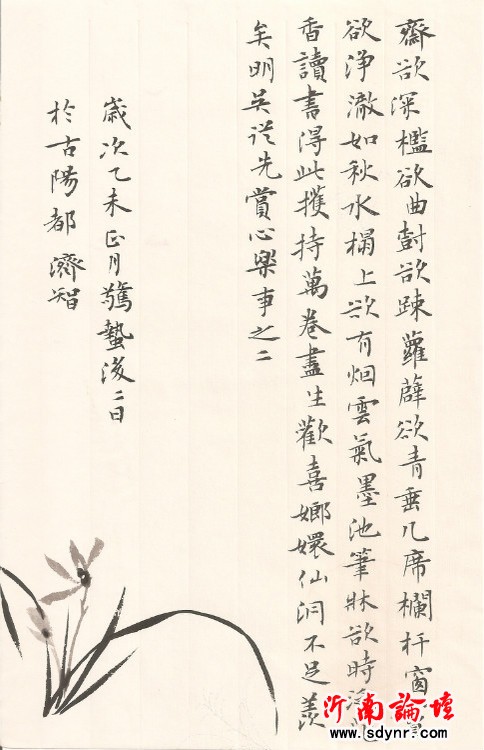 齋欲深檻欲曲樹欲踈蘿薜欲青垂几席欄杆窗
欲淨澈如秋水榻上欲有烟雲氣墨池筆牀欲時
香讀書得此擭持萬卷盡生歡喜嫏嬛仙洞不足羨
矣明吳從先賞心樂事之二
歲次乙未正月驚蟄後二日
於古陽都 濟智
沂南論壇
www.sdynr.com